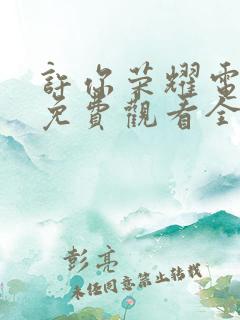 許你榮耀電
免費觀看全
彭亮
未經同意禁止轉載